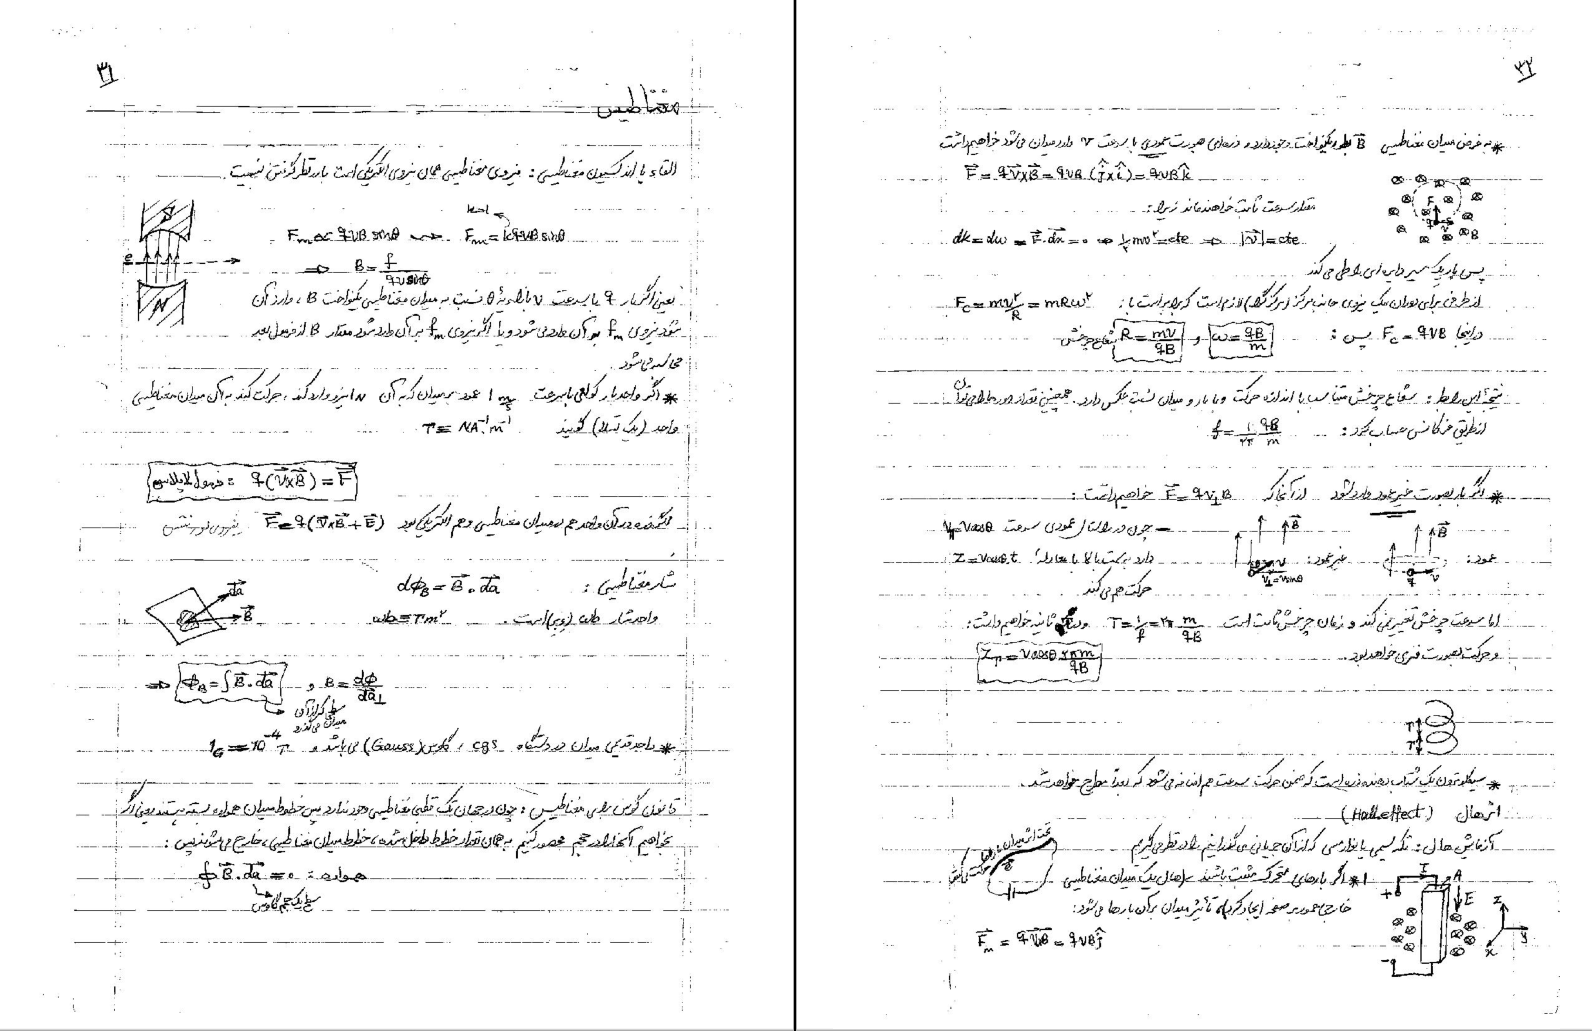 ۳۱
مغناطیس
القاء یا اندکسیون مغناطیسی : نیروی مغناطیسی همان نیروی الکتریکی است با در نظر گرفتن نسبیت .
Fm ∝ qvB sinθ ⇝ Fm = kqvB sinθ
⇒ B = f / qv sinθ
یعنی اگر بار q با سرعت v با زاویهٔ θ نسبت به میدان مغناطیسی یکنواخت B ، وارد آن
شود نیروی fm به آن وارد می شود و یا اگر نیروی fm بر آن وارد شود مقدار B از فرمول بعد
محاسبه می شود
* اگر واحد بار کولنی با سرعت 1 m/s عمود بر میدان که به آن 1N نیرو وارد کند ، حرکت کند به آن میدان مغناطیسی
واحد (یک تسلا) گویند T = NA⁻¹m⁻¹
فرمول لاپلاس : q(V⃗×B⃗) = F⃗
اگر ذره در آن واحد هم در میدان مغناطیسی و هم الکتریکی بود F⃗ = q(V⃗×B⃗ + E⃗) نیروی لورنتس
شار مغناطیسی : dφB = B⃗ . da⃗
واحد شار wb (وبر) است . wb = Tm²
da⃗
B⃗
⇒ φB = ∫B⃗ . da⃗ و B = dφ / da⊥
سطحی که از آن
میدان می گذرد
* واحد قدیمی میدان در دستگاه cgs ، گاوس (Gauss) می باشد و 1G = 10⁻⁴ T
قانون گوس برای مغناطیس : چون در جهان تک قطبی مغناطیسی وجود ندارد پس خطوط میدان همواره بسته هستند یعنی اگر
بخواهیم آنها را در حجم محصور کنیم به همان مقدار خطوط داخل شده ، خطوط میدان مغناطیسی ، خارج می شوند پس :
همواره : ∮ B⃗ . da⃗ = ۰
سطح یک حجم گاوس
۳۲
* به فرض میدان مغناطیسی B⃗ بطور یکنواخت وجود دارد و ذره ای بصورت عمودی با سرعت v وارد میدان می شود خواهیم داشت
F⃗ = qV⃗×B⃗ = qvB (ĵ×î) = qvB k̂
مقدار سرعت ثابت خواهد ماند زیرا :
dk = dw = F⃗ . dx⃗ = ۰ ⇒ ½ mv² = cte ⇒ |V⃗| = cte
پس بار یک مسیر دایره ای را طی می کند
از طرفی برای دوران یک نیروی جانب مرکز (مرکزگرا) لازم است که برابر است با : Fc = mv²/R = mRω²
در اینجا Fc = qvB پس : ω = qB/m و R = mv/qB شعاع چرخش
نتیجهٔ این رابطه : شعاع چرخش متناسب با اندازه حرکت و با بار و میدان نسبت عکس دارد . همچنین تعداد دورها را می توان
از طریق فرکانس حساب کرد : f = ۱/۲π qB/m
* اگر بار بصورت غیر عمود وارد شود از آنجا که F⃗ = qv⊥B خواهیم داشت :
عمود : B⃗ غیر عمود : B⃗ V⊥ = v sinθ
– چون در راستای عمودی سرعت V∥ = V cosθ
دارد به سمت بالا با معادلهٔ Z = V cosθ t
حرکت هم می کند
اما سرعت چرخش تغییر نمی کند و زمان چرخش ثابت است T = ۱/f = ۲π m/qB و در ثانیه خواهیم داشت :
و حرکت بصورت فنری خواهد بود . Zn = V cosθ ۲πm / qB
* سیکلوترون یک شتاب دهنده ذره است که ضمن حرکت سرعت هم اضافه می شود که بعداً مطرح خواهد شد .
اثر هال (Hall effect)
آزمایش هال : تکه سیمی یا نوار مسی که از آن جریانی می گذرانیم را در نظر می گیریم
۱* اگر بارهای متحرک مثبت باشند حال یک میدان مغناطیسی
خارجی عمود بر صفحه ایجاد کردیم تأثیر میدان بر آن بارها می شود :
F⃗m = qV⃗B⃗ = qvB ĵ
I A E Z y x